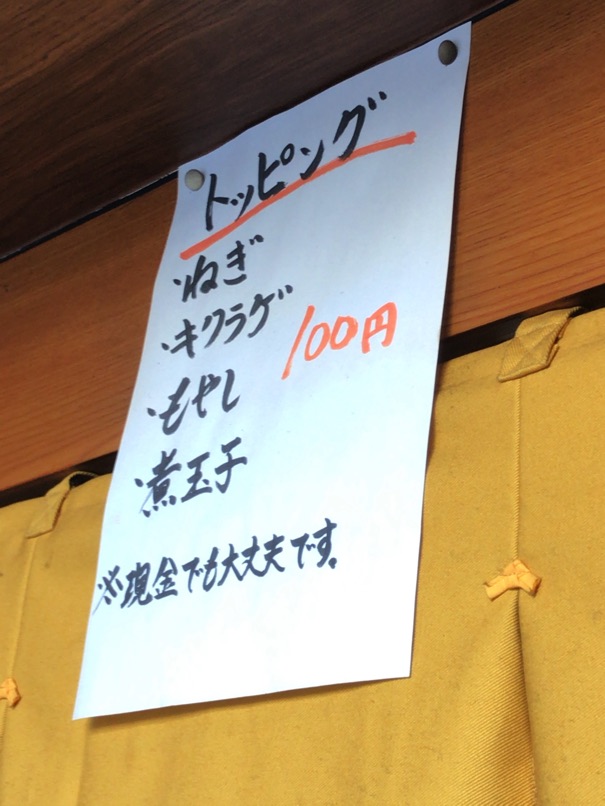 トッピング
・ねぎ
・キクラゲ
100円
・もやし
・煮玉子
※現金でも大丈夫です。